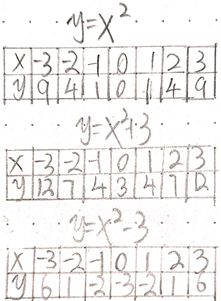 y=x²
x -3 -2 -1 0 1 2 3
y 9 4 1 0 1 4 9
y=x²+3
x -3 -2 -1 0 1 2 3
y 12 7 4 3 4 7 12
y=x²-3
x -3 -2 -1 0 1 2 3
y 6 1 -2 -3 -2 1 6